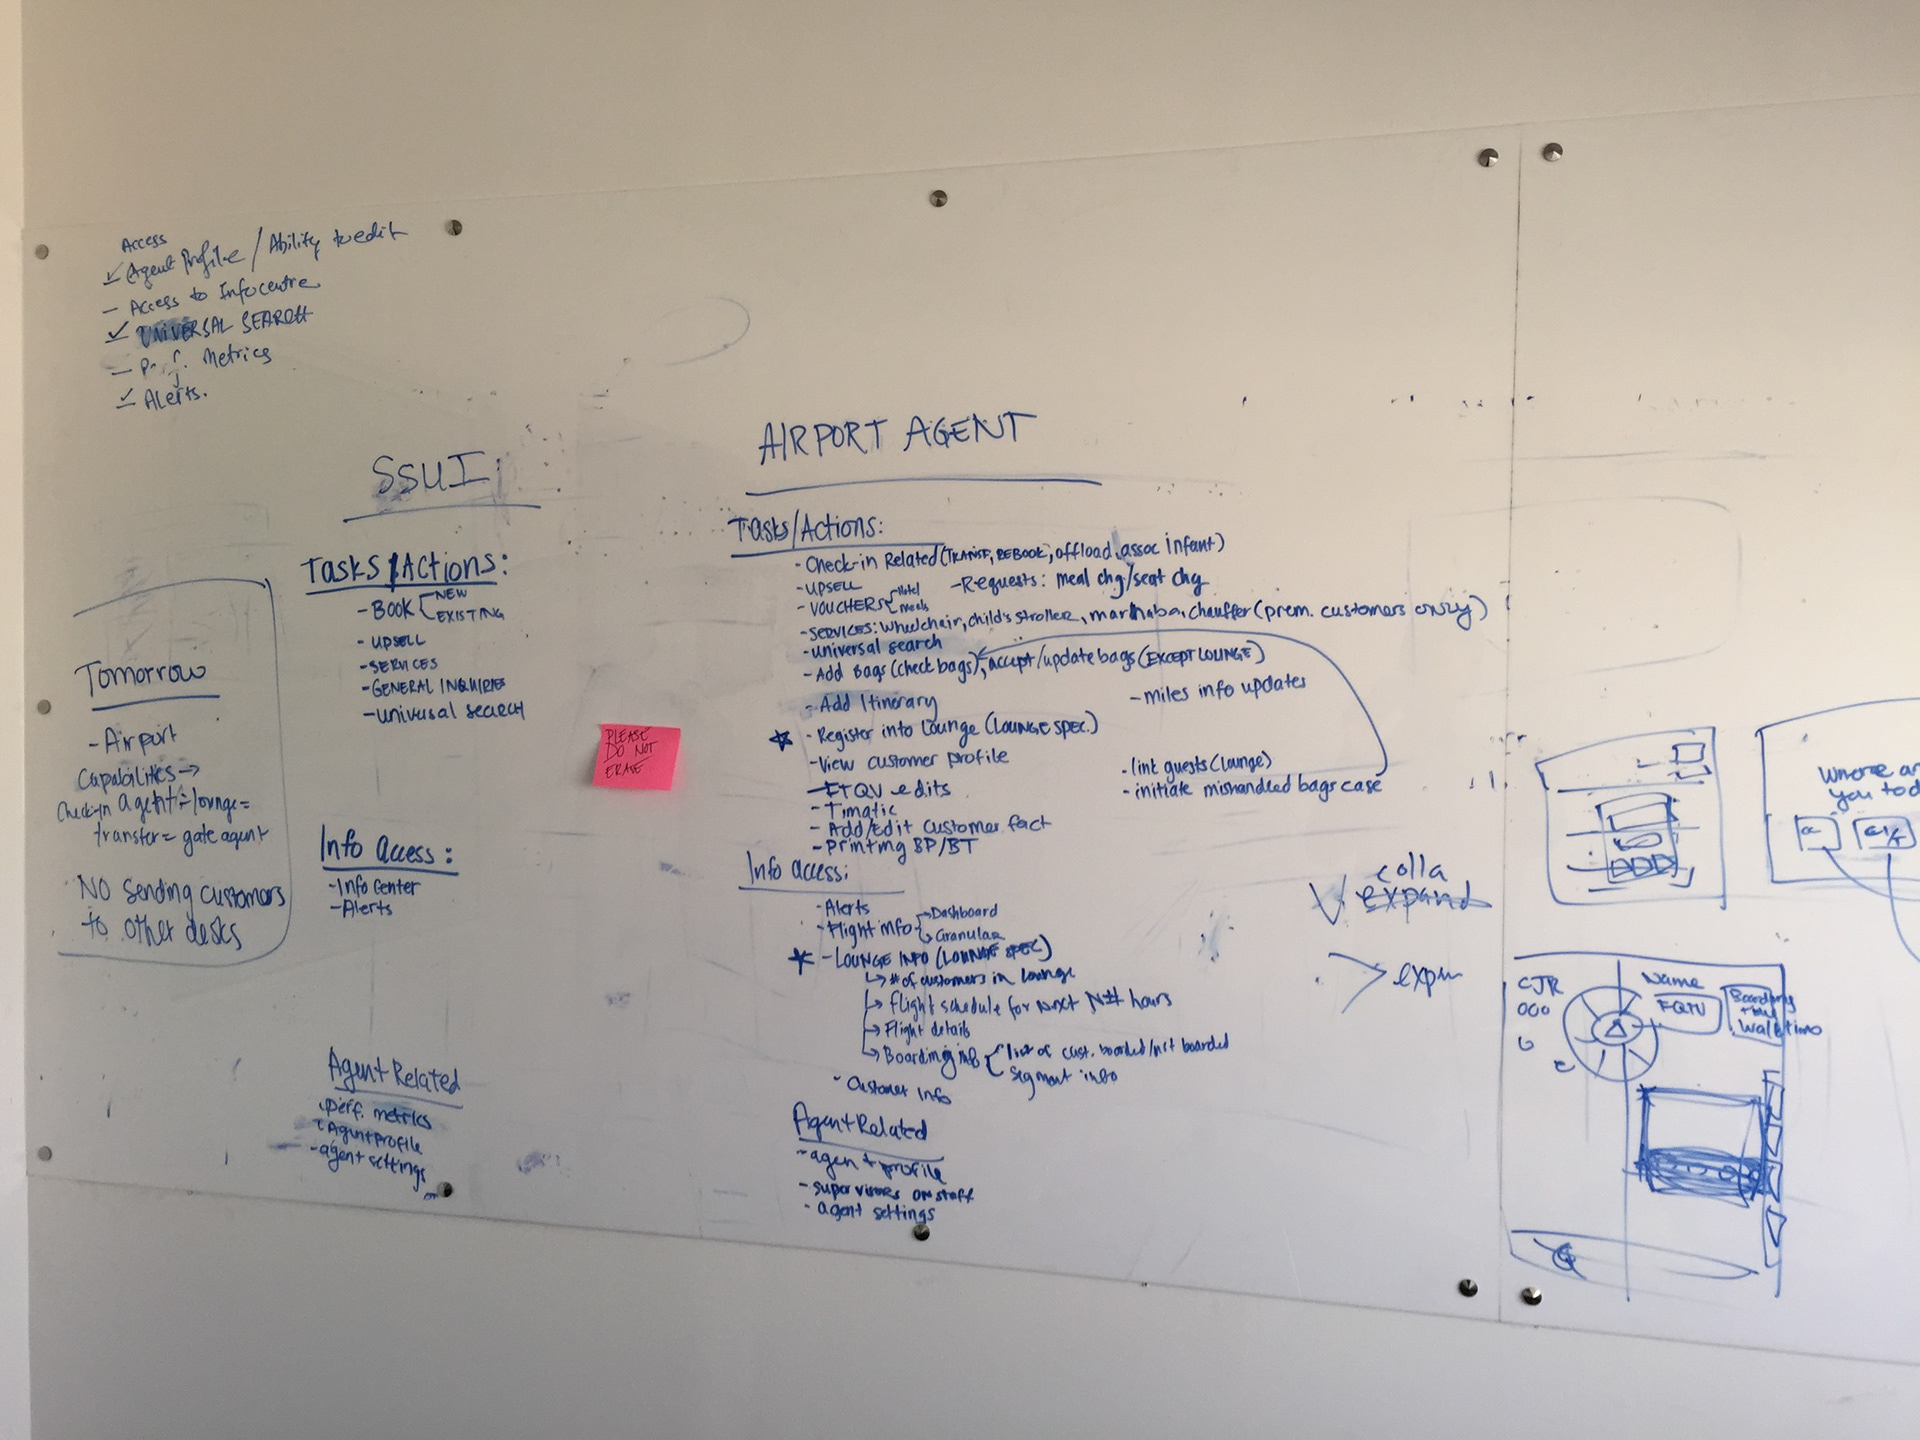 Access
✓ Agent Profile / Ability to edit
- Access to Infocentre
✓ UNIVERSAL SEARCH
- Metrics
✓ Alerts.
SSUI
Tasks/Actions:
- BOOK NEW
EXISTING
- UPSELL
- SERVICES
- GENERAL INQUIRIES
- UNIVUSAL SEARCH
Info Access:
- Info Center
- Alerts
Agent Related
- perf. metrics
- Agent profile
- agent settings
Tomorrow
- Airport
Capabilities →
Check-in agent = lounge =
transfer = gate agent
NO sending customers
to other desks
PLEASE
DO NOT
ERASE
AIRPORT AGENT
Tasks/Actions:
- Check-in Related (TRANSF, REBOOK, offload, assoc infant)
- UPSELL - Requests: meal chg/seat chg
- VOUCHERS Hotel
Meals
- SERVICES: Wheelchair, child's stroller, marhaba, chauffer (prem. customers ONLY)
- universal search
- Add Bags (check bags), accept/update bags (EXCEPT LOUNGE)
- Add Itinerary - miles info updates
★ - Register into Lounge (LOUNGE SPEC.)
- View customer profile - link guests (lounge)
- FTQV edits - initiate mishandled bags case
- Timatic
- Add/edit customer fact
- Printing BP/BT
Info access:
- Alerts
- Flight info → Dashboard
↳ Granular
★ - LOUNGE INFO (LOUNGE SPEC)
↳ # of customers in lounge
↳ Flight schedule for next N# hours
↳ Flight details
↳ Boarding info list of cust. boarded/not boarded
segment info
- Customer Info
Agent Related
- agent profile
- supervisors on staff
- agent settings
colla
expand
> expn
Where ar
you tod
CJR
Name
FQTV
Boarding
Walk time